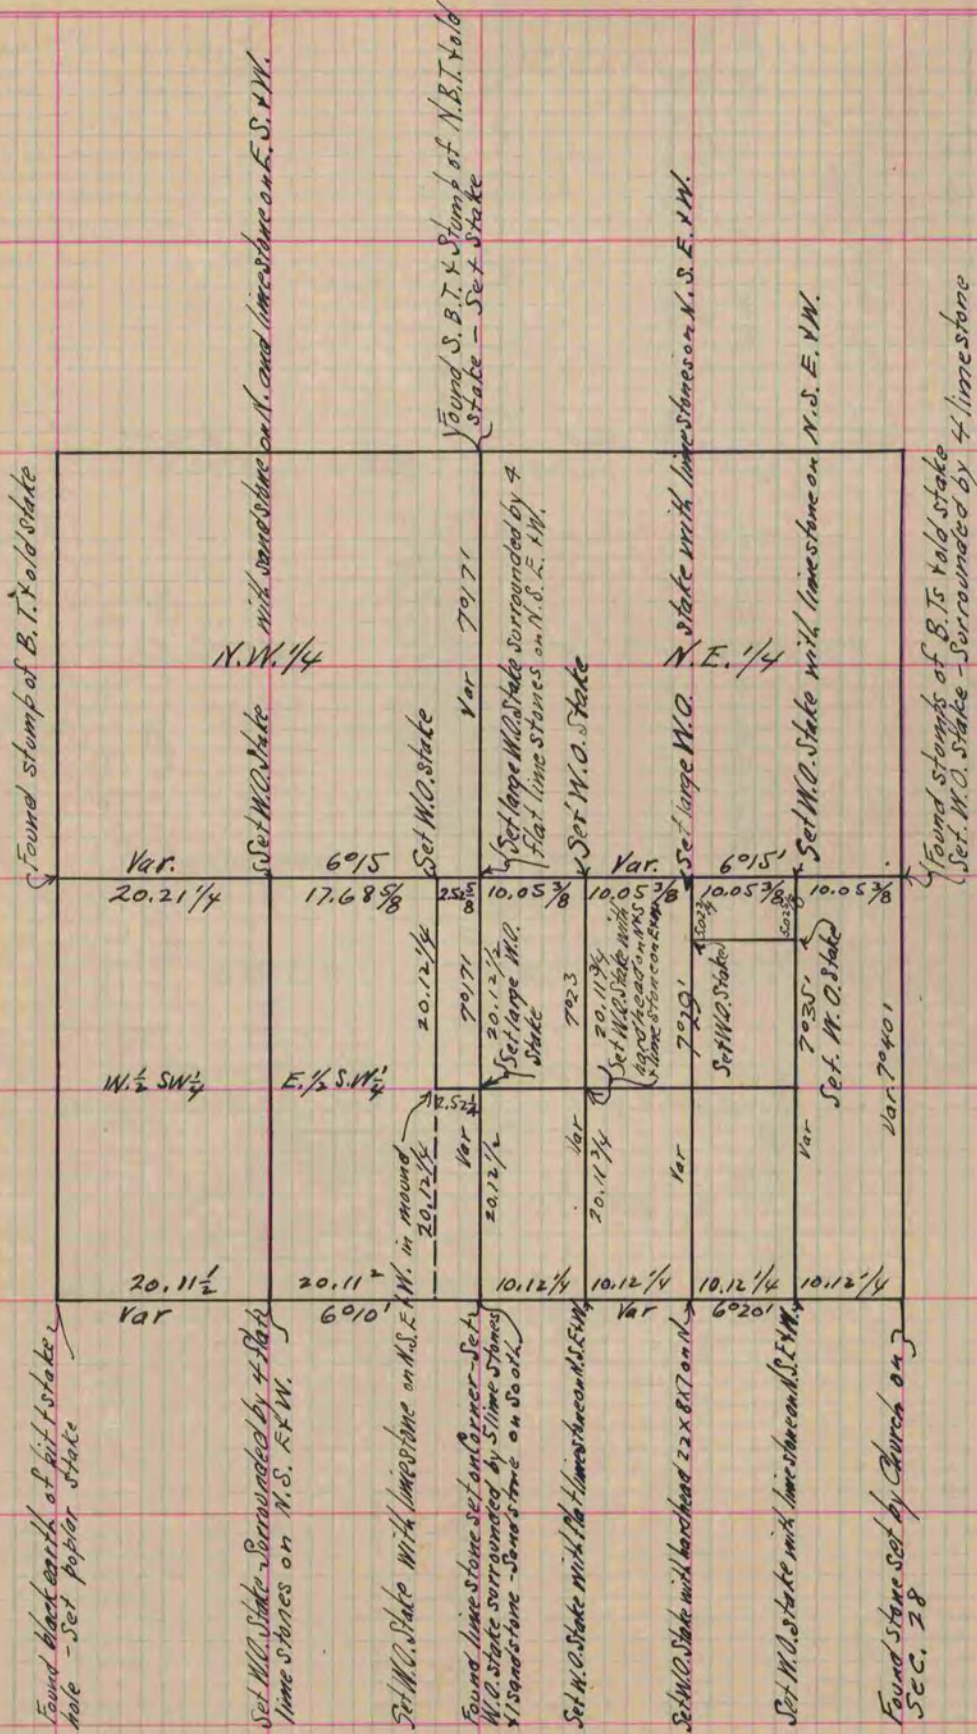 Found stump of B.T. & old stake
with sandstone on N. and limestone on E.S. & W.
Found S.B.T. & Stump of N.B.T. & old
stake - Set Stake
N.W. 1/4
Set W.O. Stake
Set W.O. stake
Var 7°17'
Set large W.O. Stake surrounded by 4
flat lime stones on N.S. E. & W.
Set W.O. Stake
N.E. 1/4
Set large W.O. stake with limestones on N.S. E. & W.
Set W.O. Stake with limestone on N.S. E. & W.
Found stumps of B.Ts & old stake
Set W.O. Stake - Surrounded by 4 limestone
Var. 6°15
20.21 1/4
17.68 5/8
2.52 5/8
10.05 3/8
10.05 3/8
Var. 6°15'
10.05 3/8
10.05 3/8
20.12 1/4
7°17'
20.12 1/2
Set large W.O.
Stake
7°23
20.11 3/4
Set W.O. Stake with
hard head on N & S
& limestone on E & W
7°29'
5.02 3/4
Set W.O. Stake
7°35'
Set. W.O. Stake
W. 1/2 SW 1/4
E. 1/2 S.W 1/4
2.52 1/2
20.12 1/4
Var
20.12 1/2
Var
20.11 3/4
Var
Var
Var. 7°40'
20.11 1/2
Var
20.11 2
6°10'
10.12 1/4
10.12 1/4
Var
10.12 1/4
6°20'
10.12 1/4
Found black earth of pit & stake
hole - Set poplar stake
Set W.O. Stake Surrounded by 4 flat
lime stones on N.S. E & W.
Set W.O. Stake with limestone on N.S. E & W. in mound
Found limestone set on Corner - Set
W.O. stake surrounded by 5 lime stones
& 1 sandstone - Sandstone on South
Set W.O. Stake with flat limestone on N.S.E & W.
Set W.O. Stake with hardhead 22x8x7 on N
Set W.O. stake with limestone on N.S. E & W.
Found stone set by Church on
Sec. 28